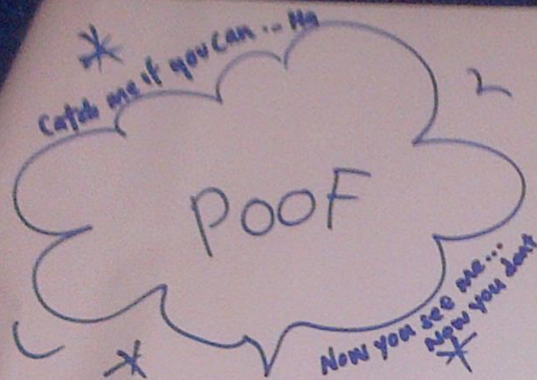 Catch me if you can... Ha
POOF
Now you see me...
Now you dont